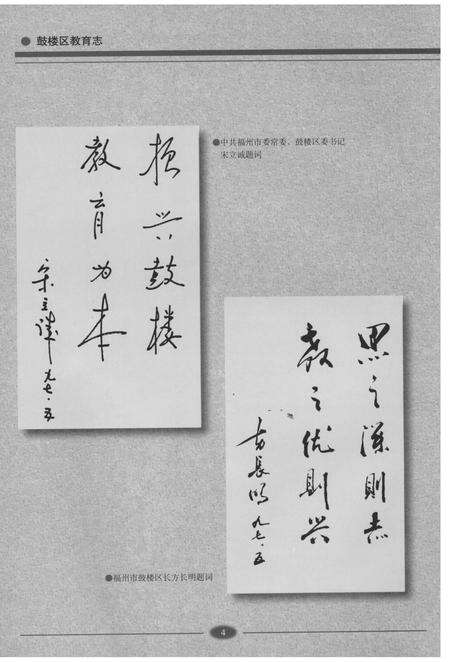 鼓楼区教育志
●中共福州市委常委、鼓楼区委书记
宋立诚题词
振兴鼓楼
教育为本
宋立诚 九七·五
思之深則志
教之优則兴
方長明 九七·五
●福州市鼓楼区长方长明题词
4